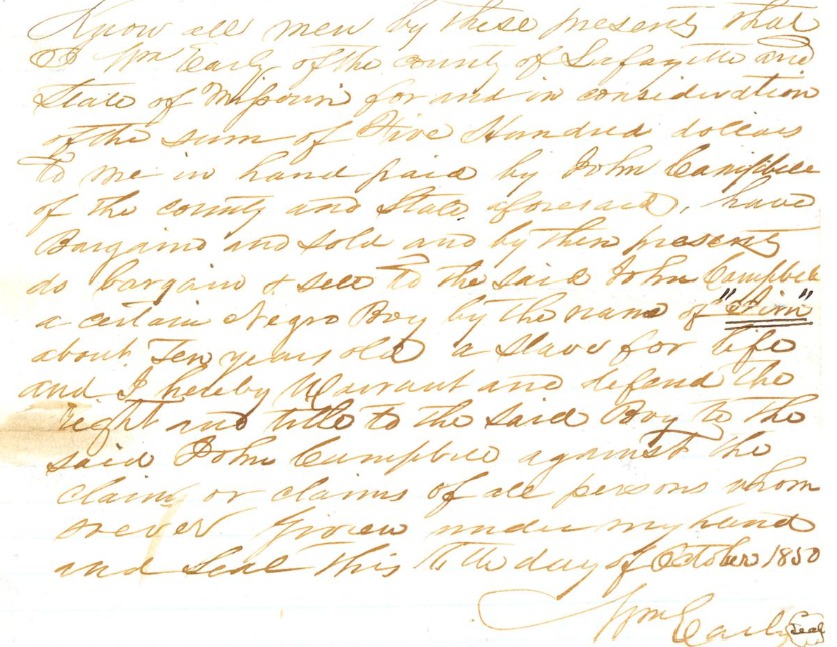 Know all men by these presents that
I Wm Early of the county of Lafayette and
State of Missouri for and in consideration
of the sum of Five Hundred dollars
to me in hand paid by John Campbell
of the county and State aforesaid, have
Bargaind and sold and by these presents
do bargain & sell to the said John Campbell
a certain Negro Boy by the name of
about Ten years old a slave for life
and I hereby Warrant and defend the
right and title to the said Boy to the
said John Campbell against the
claim or claims of all persons whom
soever Given under my hand
and Seal this day of October 1850
Wm Early Seal